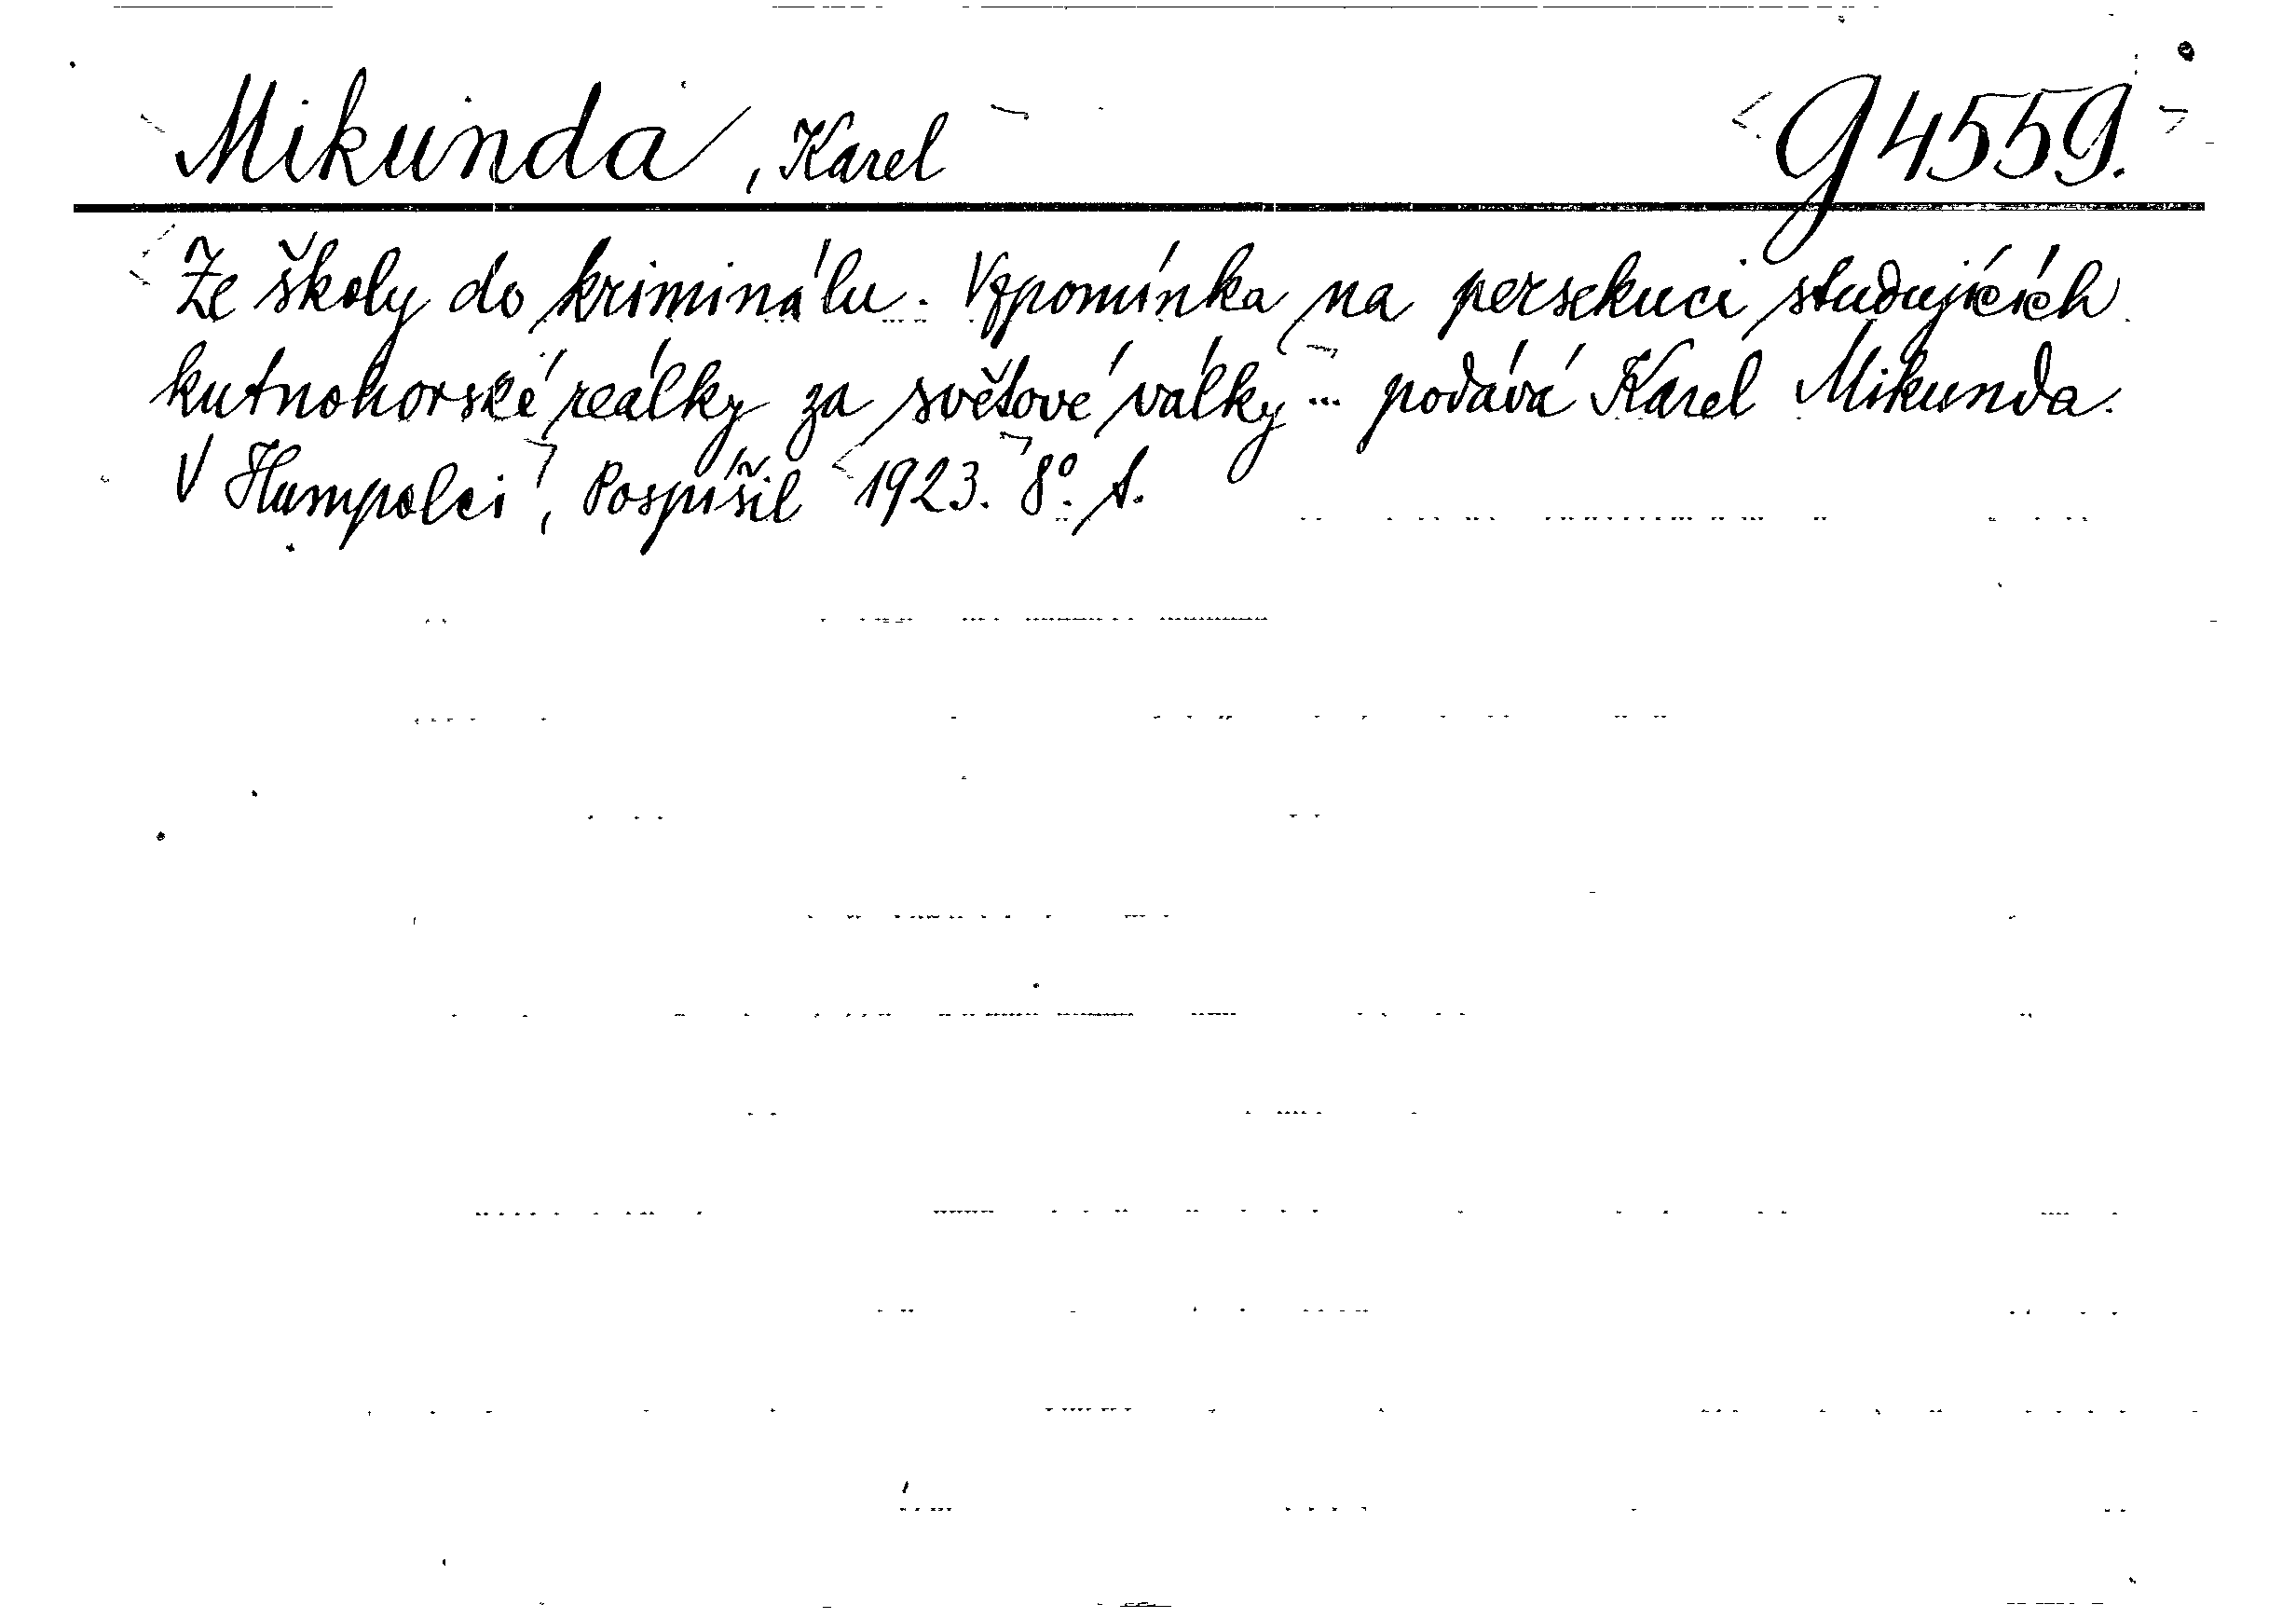 Mikunda, Karel G 4559.
Ze školy do kriminálu. Vzpomínka na persekuci studujících
kutnohorské reálky za světové války ... podává Karel Mikunda.
V Humpolci, Pospíšil 1923. 8°.